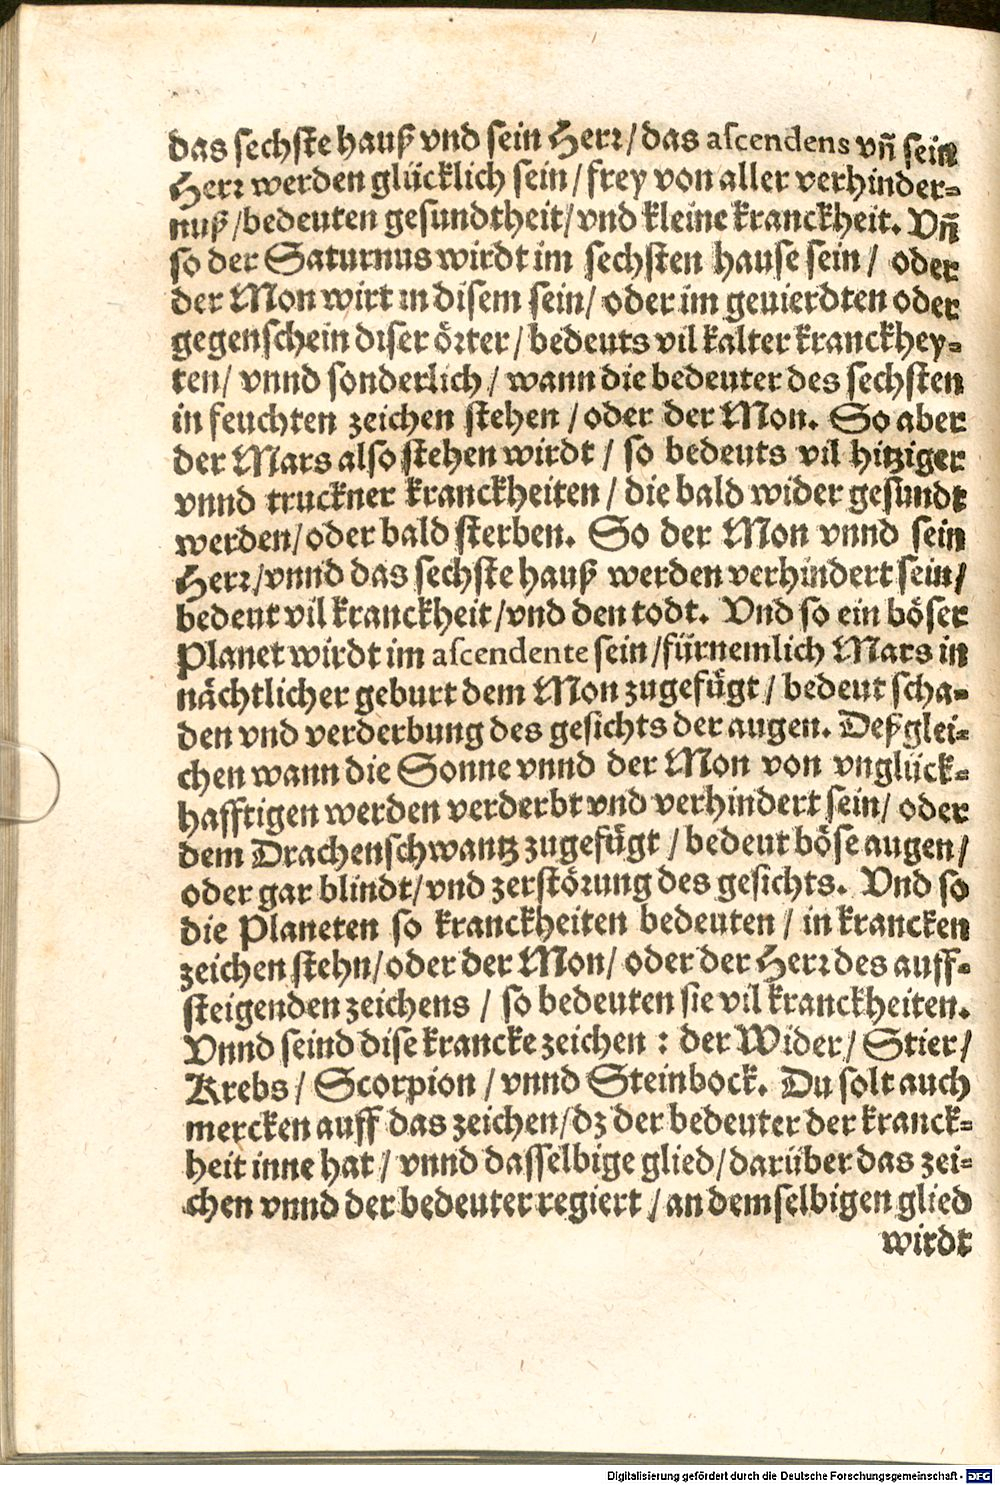 das sechste hauß vnd sein Herr/das ascendens vñ sein
Herr werden glücklich sein/frey von aller verhinder=
nuß/bedeuten gesundtheit/vnd kleine kranckheit. Vñ
so der Saturnus wirdt im sechsten hause sein/ oder
der Mon wirt in disem sein/ oder im geuierdten oder
gegenschein diser örter/bedeuts vil kalter kranckhey=
ten/ vnnd sonderlich/ wann die bedeuter des sechsten
in feuchten zeichen stehen/oder der Mon. So aber
der Mars also stehen wirdt/ so bedeuts vil hitziger
vnnd truckner kranckheiten/die bald wider gesundt
werden/oder bald sterben. So der Mon vnnd sein
Herr/vnnd das sechste hauß werden verhindert sein/
bedeut vil kranckheit/vnd den todt. Vnd so ein böser
Planet wirdt im ascendente sein/fürnemlich Mars in
nächtlicher geburt dem Mon zugefügt/ bedeut scha=
den vnd verderbung des gesichts der augen. Deßglei=
chen wann die Sonne vnnd der Mon von vnglück=
hafftigen werden verderbt vnd verhindert sein/ oder
dem Drachenschwantz zugefügt/bedeut böse augen/
oder gar blindt/vnd zerstörung des gesichts. Vnd so
die Planeten so kranckheiten bedeuten/ in krancken
zeichen stehn/oder der Mon/ oder der Herr des auff=
steigenden zeichens / so bedeuten sie vil kranckheiten.
Vnnd seind dise krancke zeichen : der Wider/ Stier/
Krebs/ Scorpion/vnnd Steinbock. Du solt auch
mercken auff das zeichen/dz der bedeuter der kranck=
heit inne hat/ vnnd dasselbige glied/darüber das zei=
chen vnnd der bedeuter regiert/an demselbigen glied
wirdt
Digitalisierung gefördert durch die Deutsche Forschungsgemeinschaft - DFG